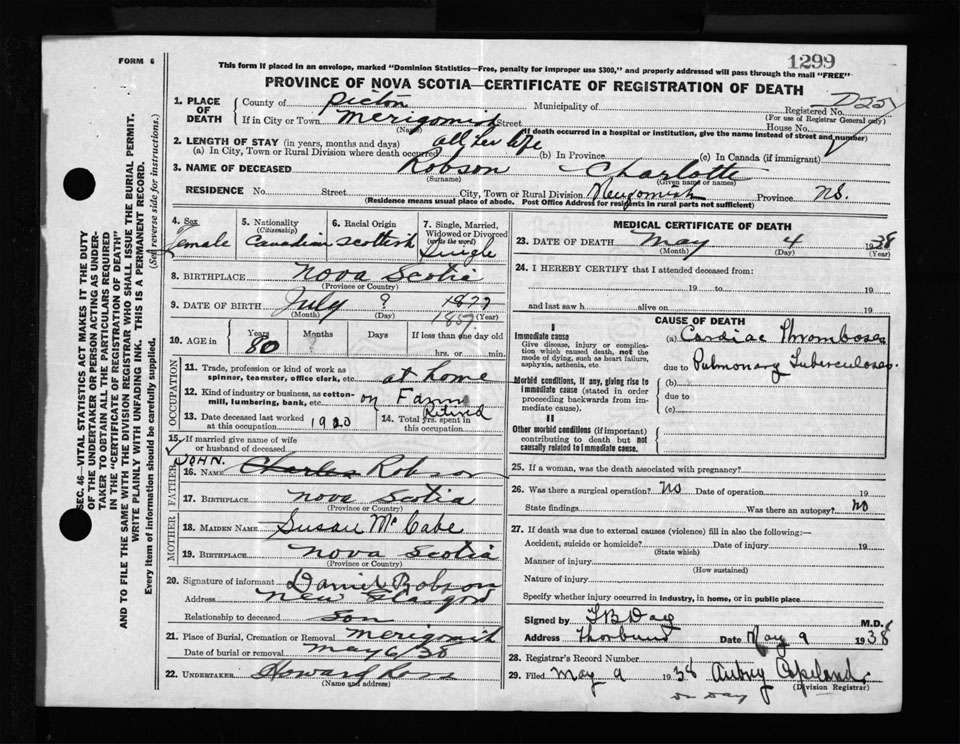 1299
FORM 6
This form if placed in an envelope, marked "Dominion Statistics—Free, penalty for improper use $300," and properly addressed will pass through the mail "FREE"
PROVINCE OF NOVA SCOTIA—CERTIFICATE OF REGISTRATION OF DEATH
1. PLACE OF DEATH County of Pictou Municipality of Registered No.
(For use of Registrar General only)
If in City or Town Merigomish Street House No.
(Name) (If death occurred in a hospital or institution, give the name instead of street and number)
2. LENGTH OF STAY (in years, months and days)
(a) In City, Town or Rural Division where death occurred all her life (b) In Province (c) In Canada (if immigrant)
3. NAME OF DECEASED Robson Charlotte
(Surname) (Given name or names)
RESIDENCE No. Street City, Town or Rural Division Merigomish Province NS.
(Residence means usual place of abode. Post Office Address for residents in rural parts not sufficient)
4. Sex 5. Nationality 6. Racial Origin 7. Single, Married, Widowed or Divorced
(Citizenship) (write the word)
female Canadian Scottish Single
8. BIRTHPLACE Nova Scotia
(Province or Country)
9. DATE OF BIRTH July ? 1877
1857
(Month) (Day) (Year)
10. AGE in Years Months Days If less than one day old
80 ? hrs. or min.
OCCUPATION
11. Trade, profession or kind of work as spinner, teamster, office clerk, etc. at home
12. Kind of industry or business, as cotton-mill, lumbering, bank, etc. on Farm
Retired
13. Date deceased last worked at this occupation 1920 14. Total yrs. spent in this occupation
15. If married give name of wife or husband of deceased
FATHER
JOHN.
16. NAME Charles Robson
17. BIRTHPLACE Nova Scotia
(Province or Country)
MOTHER
18. MAIDEN NAME Susan McCabe
19. BIRTHPLACE Nova Scotia
(Province or Country)
20. Signature of informant Daniel Robson
Address New Glasgow
Relationship to deceased Son
21. Place of Burial, Cremation or Removal Merigomish
Date of burial or removal May 6/38
22. UNDERTAKER Howard
(Name and address)
MEDICAL CERTIFICATE OF DEATH
23. DATE OF DEATH May 4 1938
(Month) (Day) (Year)
24. I HEREBY CERTIFY that I attended deceased from:
19 to 19
and last saw h alive on 19
CAUSE OF DEATH
I
Immediate cause
Give disease, injury or complication which caused death, not the mode of dying, such as heart failure, asphyxia, asthenia, etc.
(a) Cardiac Thrombosis
due to Pulmonary Tuberculosis.
Morbid conditions, if any, giving rise to immediate cause (stated in order proceeding backwards from immediate cause).
(b)
due to
(c)
II
Other morbid conditions (if important) contributing to death but not causally related to immediate cause.
25. If a woman, was the death associated with pregnancy?
26. Was there a surgical operation? No Date of operation 19
State findings Was there an autopsy? No
27. If death was due to external causes (violence) fill in also the following:—
Accident, suicide or homicide? Date of injury 19
(State which)
Manner of injury
(How sustained)
Nature of injury
Specify whether injury occurred in industry, in home, or in public place
Signed by Day M.D.
Address Thorburn Date May 9 1938
28. Registrar's Record Number
29. Filed May 9 1938 Aubrey Copeland
(Division Registrar)
SEC. 46—VITAL STATISTICS ACT MAKES IT THE DUTY
OF THE UNDERTAKER OR PERSON ACTING AS UNDER-
TAKER TO OBTAIN ALL THE PARTICULARS REQUIRED
IN THE "CERTIFICATE OF REGISTRATION OF DEATH"
AND TO FILE THE SAME WITH THE DIVISION REGISTRAR WHO SHALL ISSUE THE BURIAL PERMIT.
WRITE PLAINLY WITH UNFADING INK. THIS IS A PERMANENT RECORD.
Every item of information should be carefully supplied. (See reverse side for instructions.)